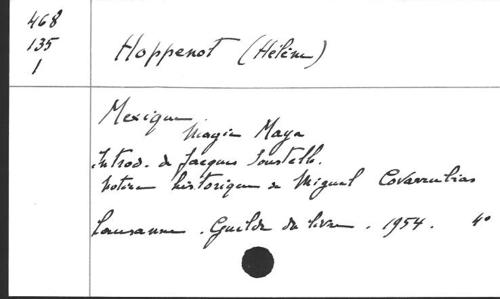 468
135
1
Hoppenot (Hélène)
Mexique
Magie Maya
Introd. de Jacques Soustelle.
Notice historique de Miguel Covarrubias
Lausanne. Guilde du livre. 1954. 4°